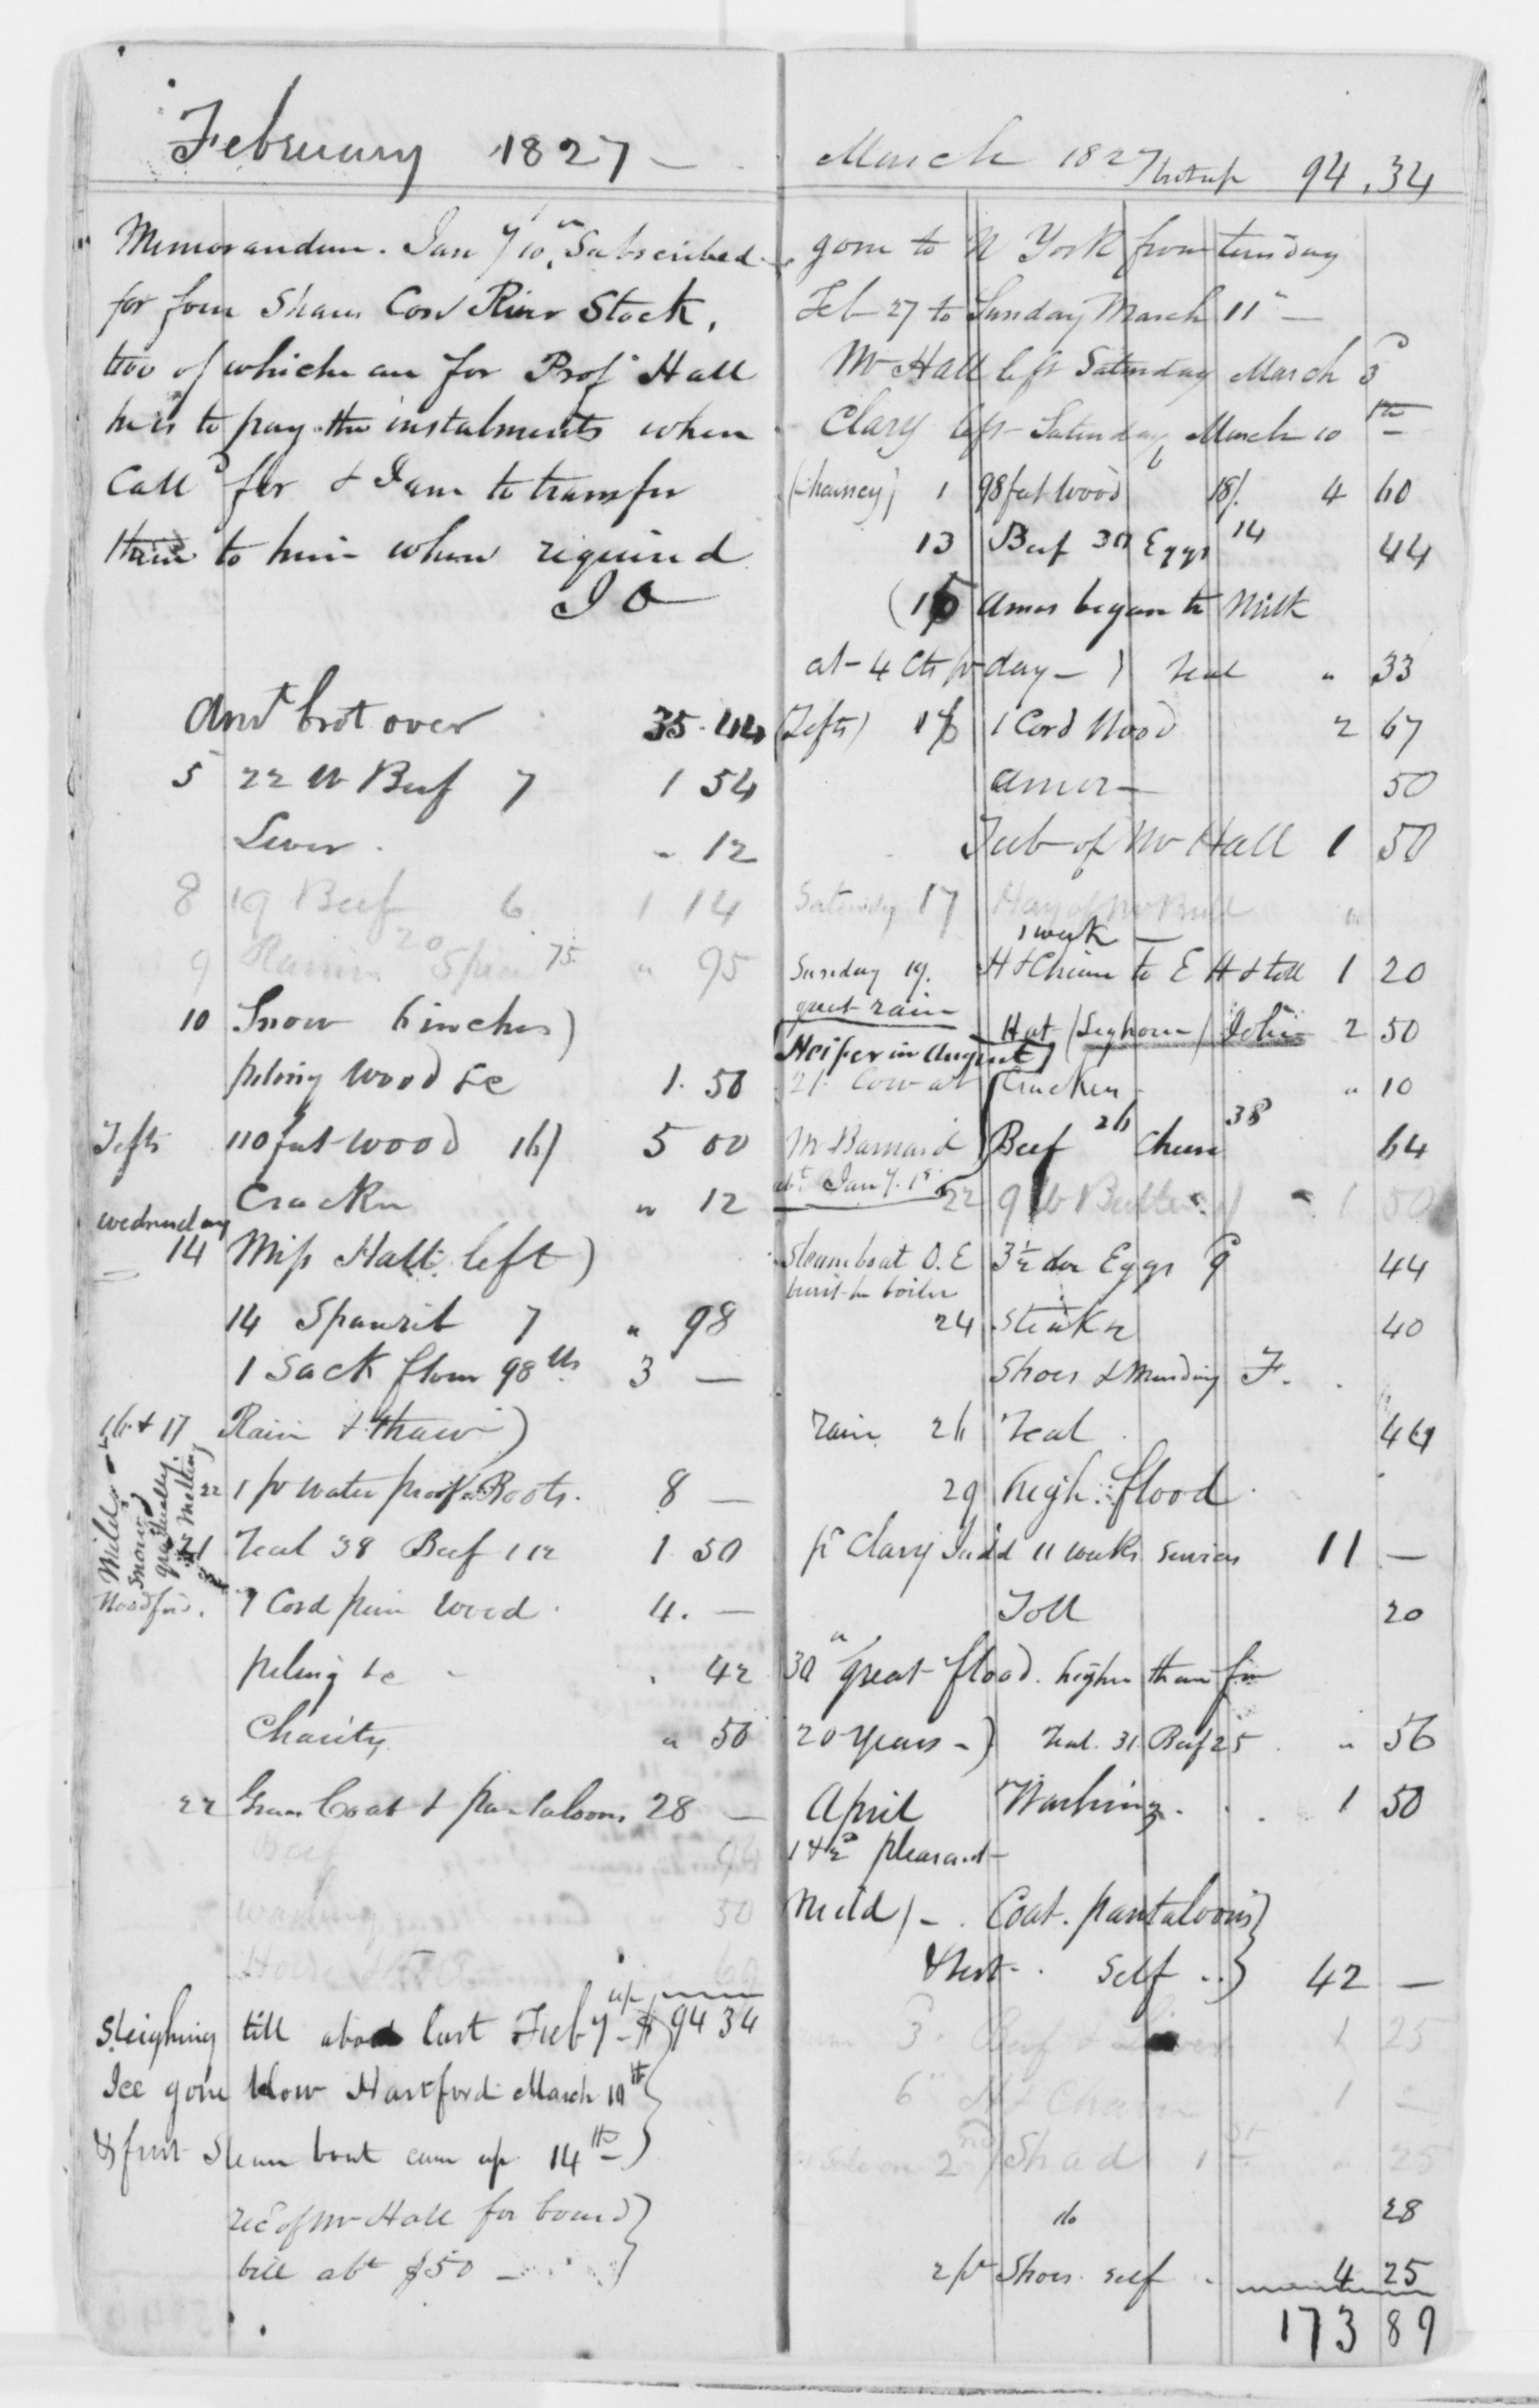 February 1827 –
Memorandum. Jany 10th Subscribed
for four Shares Con River Stock,
two of which are for Prof Hall
he is to pay the instalments when
Calld for & I am to transfer
them to him when required
J O
Amt brot over 35.44
5 22 lb Beef 7 1 54
Liver . " 12
8 19 Beef 6 1 14
9 Raisins 20 Spice 75 " 95
10 Snow 6 inches)
piling wood &c 1. 50
Tefts 110 feet wood 16/ 5 00
Cracker " 12
Wednesday
14 Miss Hall left)
14 Sparerib 7 " 98
1 Sack flour 98 lbs 3 —
16 & 17 Rain & thaw)
Mild –
Snow
gradually
melting
22 1 pr water proof Boots. 8 —
21 Veal 38 Beef 112 1 50
Woodford. 1 Cord pine wood . 4. —
piling &c - . 42
Charity " 50
22 Coat & pantaloons 28 —
Beef 94
washing 50
up
Sleighing till about last Feby - $ 94 34
Ice gone below Hartford March 10th
& first Steam boat came up 14th
recd of Mr Hall for board
bill abt $50 –
March 1827 brot up 94.34
gone to N York from tuesday
Feb 27 to Sunday March 11th —
Mr Hall left Saturday March 3d
Clary left Saturday March 10th
(Chauncey) 1 98 feet wood 18/. 4 60
13 Beef 30 Eggs 14 44
(15 Amos began to Milk
at 4 cts pr day – ) Veal " 33
(Tefts) 16 1 Cord Wood 2 67
Amos — 50
Tub of Mr Hall 1 50
Saturday 17 Hay of Mr Bull "
1 week —
Sunday 19. H & Chaise to E H & toll 1 20
great rain
Hat (Leghorn) John 2 50
Heifer in August)
21 Cow at Cracker " 10
Mr Barnard Beef 26 Cheese 38 64
abt Jany. 1st
22 9 lb Butter 1 50
Steamboat O. E 3½ doz Eggs 9 44
burst her boiler
24 Steak 40
Shoes & Mending F.
rain 26 Veal 44
29 high flood
pd Clary Judd 11 weeks services 11 —
Toll 20
30th Great flood. higher than for
20 years –) Veal. 31 Beef 25 " 56
April Washing . . 1 50
1 & 2d pleasant
mild) – . Coat. pantaloons
& vest . . Self .. 42 —
3. Beef & Liver 1 25
6th 1 —
2nd Shad 1st " 25
do 28
2 pr Shoes self . 4 25
173 89